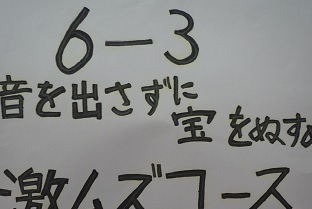 6-3
音を出さずに
宝をぬすめ
激ムズコース